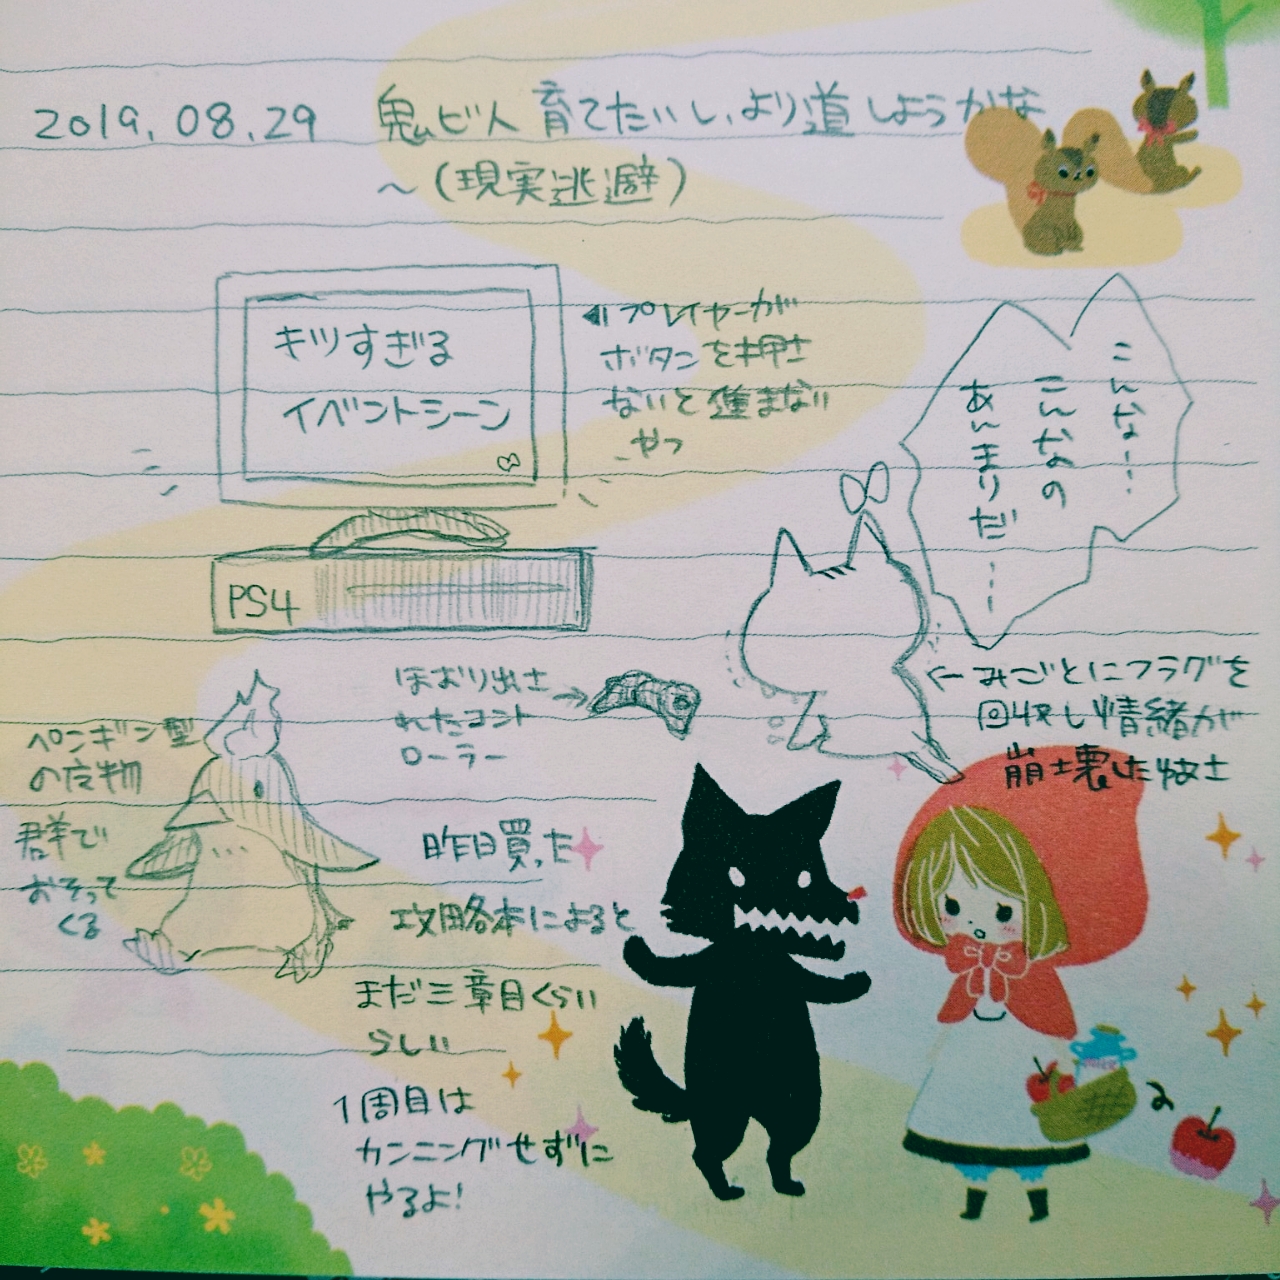 2019.08.29 鬼ビ人育てたいし、より道しようかな
～(現実逃避)
キツすぎる
イベントシーン
◀プレイヤーが
ボタンを押さ
ないと進まない
やつ
こんな……
こんなの
あんまりだ……
PS4
ほおり出さ
れたコント
ローラー
←みごとにフラグを
回収し情緒が
崩壊した牧士
ペンギン型
の皮物
群羊で
おそって
くる
昨日買った
攻略本によると
まだ三章目くらい
らしい
1周目は
カンニングせずに
やるよ!